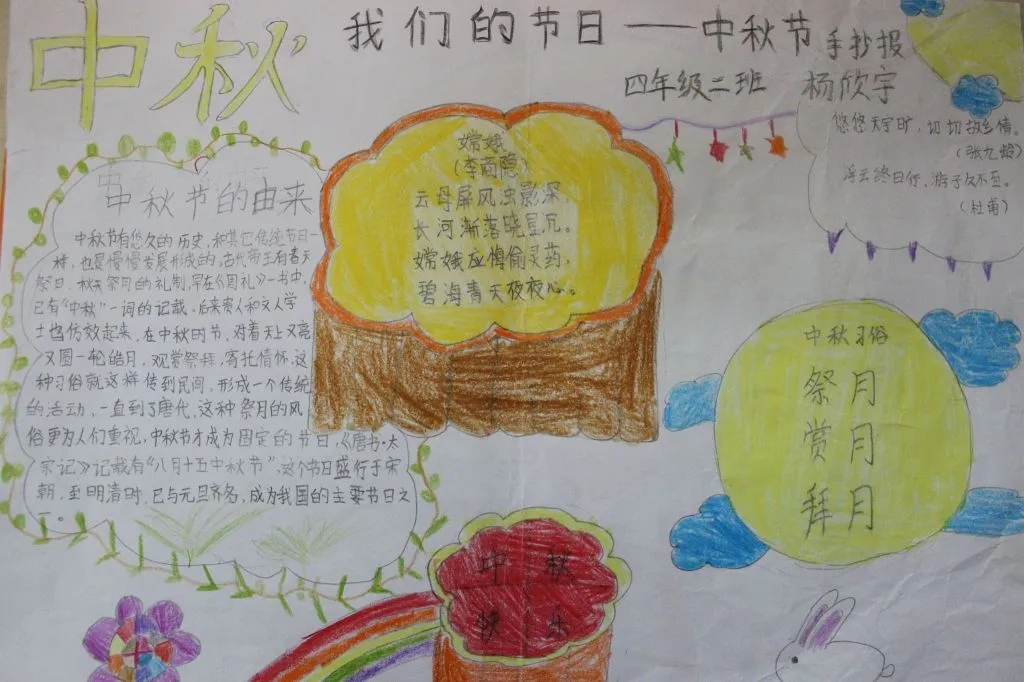 中秋
我们的节日——中秋节 手抄报
四年级二班 杨欣宇
中秋节的由来
中秋节有悠久的历史,和其它传统节日一
样,也是慢慢发展形成的,古代帝王有春天
祭日,秋天祭月的礼制,早在《周礼》一书中,
已有“中秋”一词的记载。后来贵人和文人学
士也仿效起来,在中秋时节,对着天上又亮
又圆一轮皓月,观赏祭拜,寄托情怀,这
种习俗就这样传到民间,形成一个传统
的活动,一直到了唐代,这种祭月的风
俗更为人们重视,中秋节才成为固定的节日,《唐书·太
宗记》记载有“八月十五中秋节”,这个节日盛行于宋
朝,至明清时,已与元旦齐名,成为我国的主要节日之
一。
嫦娥
(李商隐)
云母屏风烛影深,
长河渐落晓星沉。
嫦娥应悔偷灵药,
碧海青天夜夜心。
悠悠天宇旷,切切故乡情。
(张九龄)
浮云终日行,游子久不至。
(杜甫)
中秋习俗
祭月
赏月
拜月
中秋
快乐